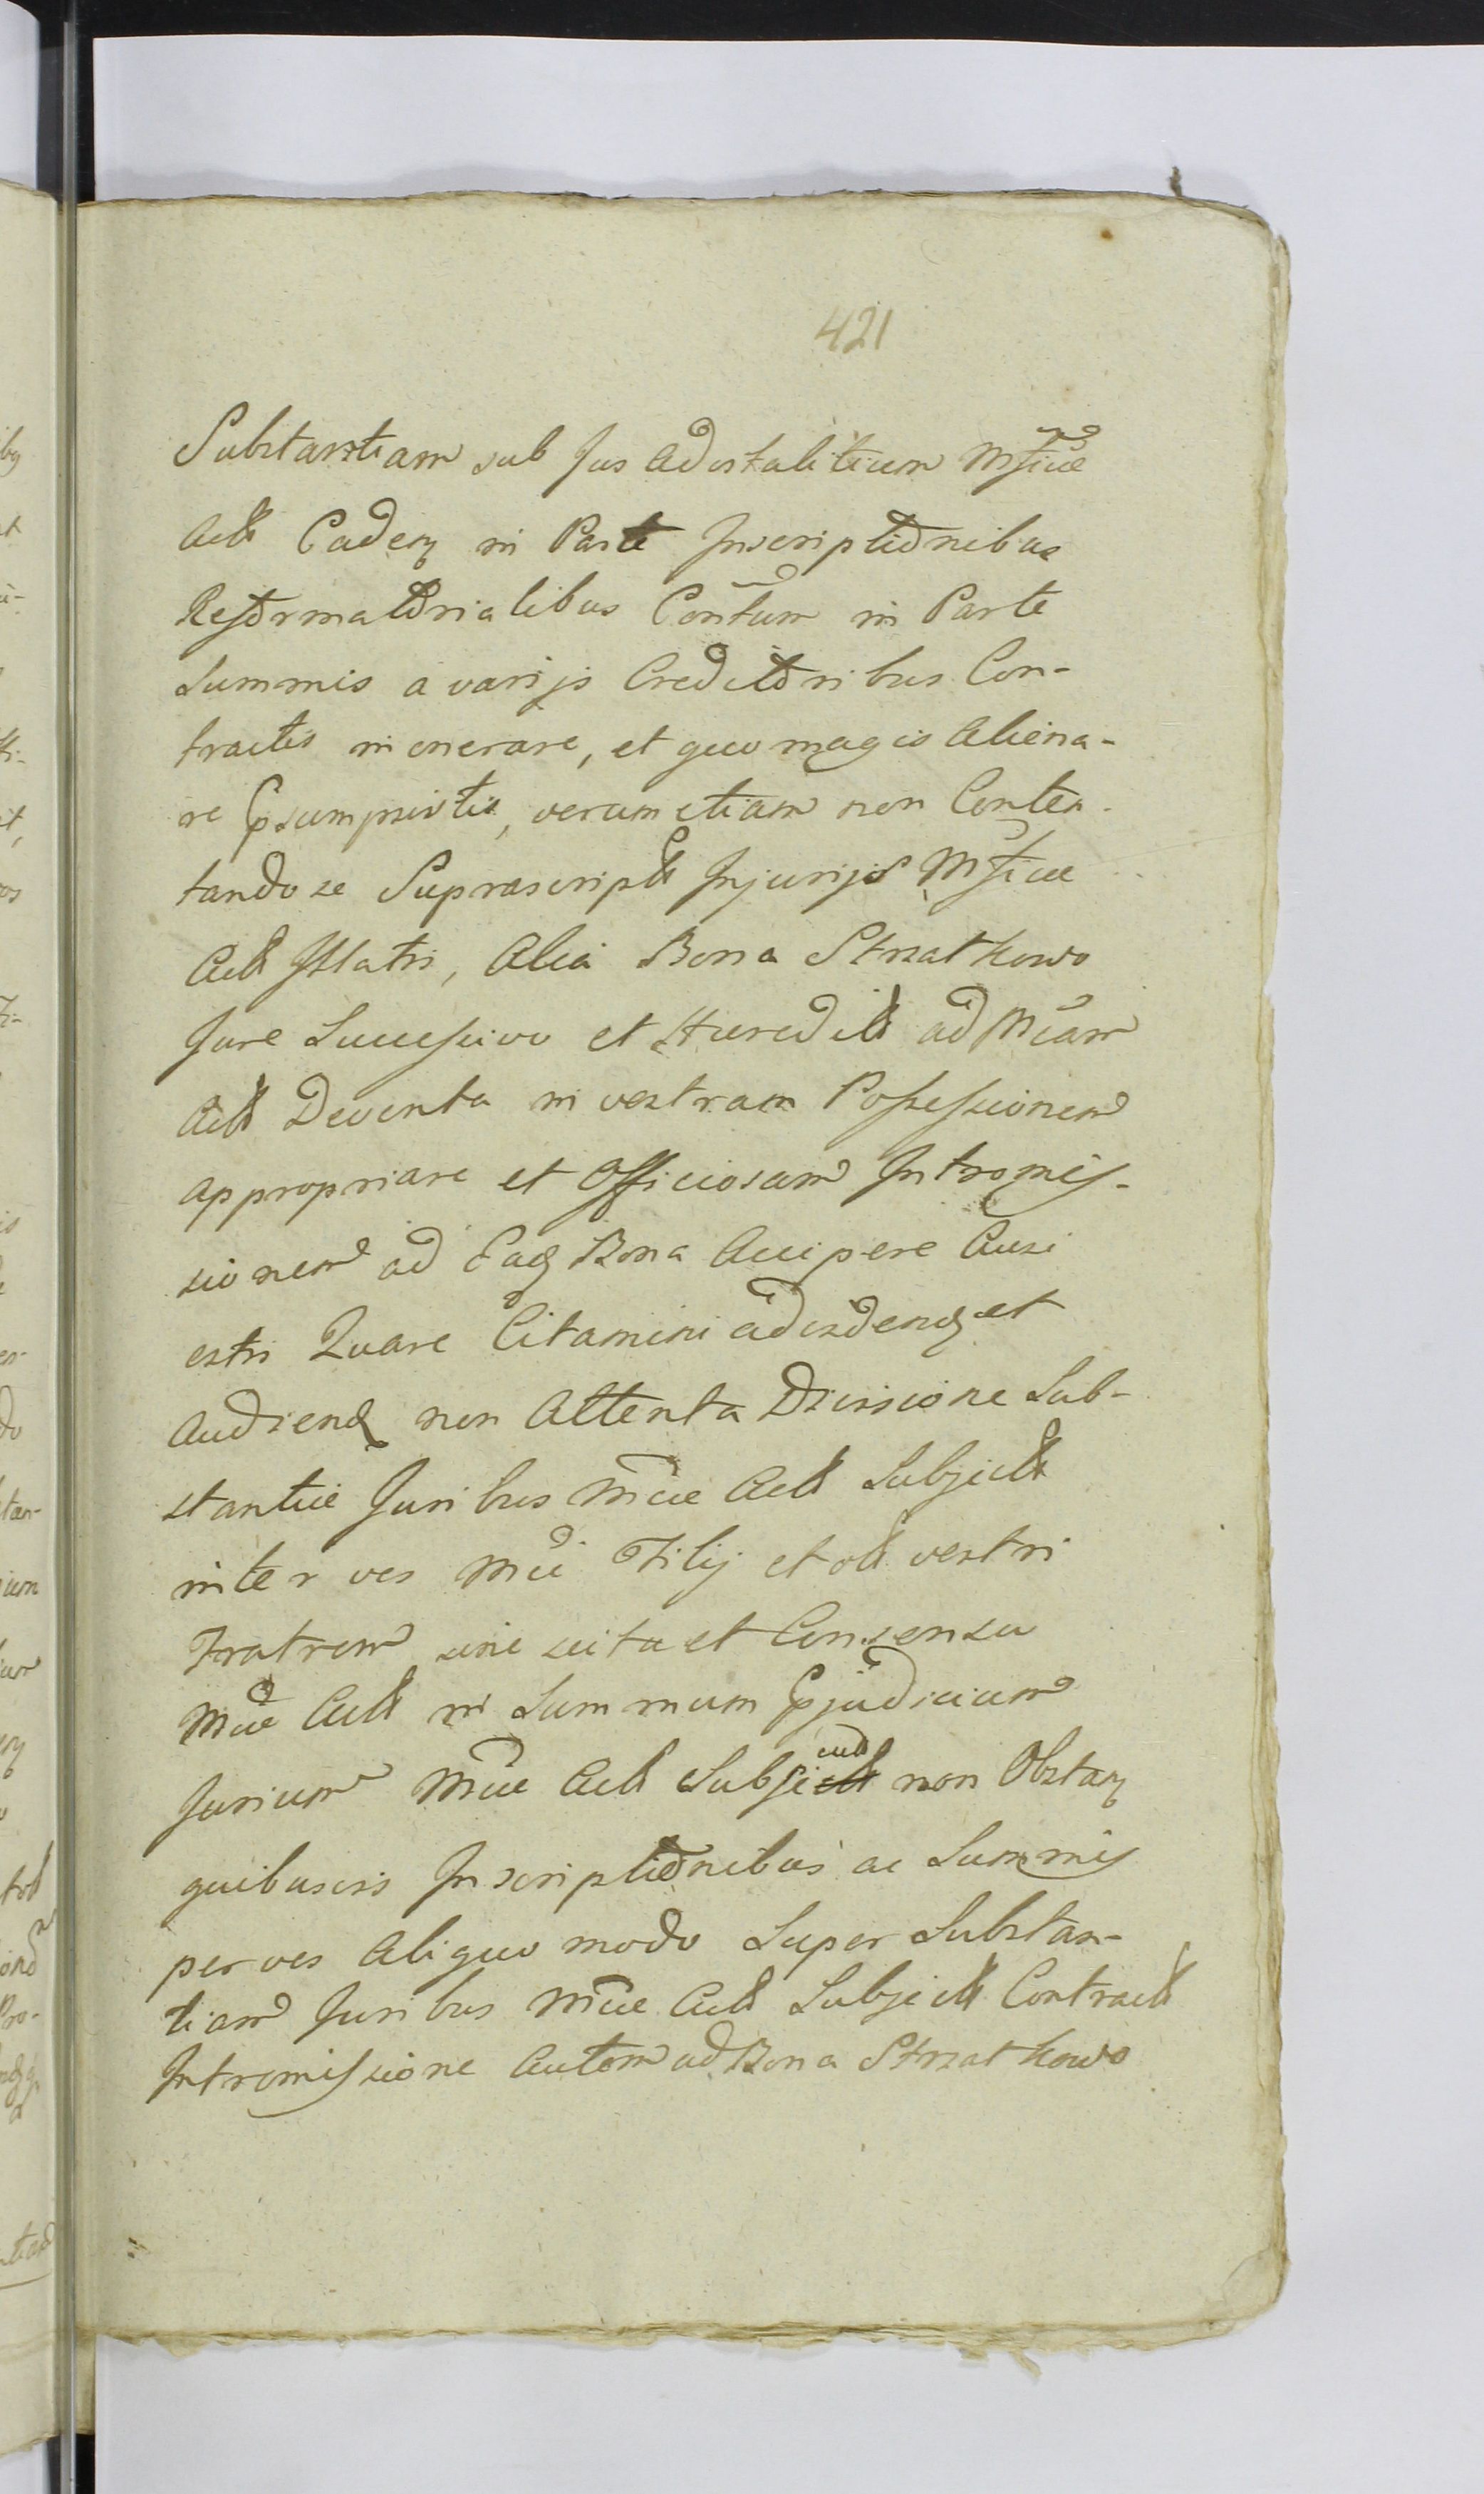 421
Substantiam sub Jus advitalitium Mficae
Act Eadem in Parte Inscriptionibus
Reformatorialibus Contum in Parte
Summis a varijs Creditoribus Con-
tractis in onerare, et quo magis Aliena-
re Psumpsistis, verum etiam non Conten-
tando se Suprascript Injurijs Mficae
Act Illatis, Alia Bona Strzatkowo
Jure Successivo et Haeredit ad Mcam
Act Deventa in vestram Possessionem
appropriare et Officiosam Intromis-
sionem ad Eaq Bona Accipere Ausi
estis Quare Citamini ad vidend et
Audiend non Attenta Divisione Sub-
stantiae Juribus Mcae Act Subject
inter vos Mci Filij et olt vestri
Fratrem sine scitu et Consensu
Mcae Act in Summum Pjudicium
Jurium Mcae Act Subject non Obstan
quibusvis Inscriptionibus ac Summis
per vos Aliquo modo Super Substan-
tiam Juribus Mcae Act Subject Contract
Intromissione Autem ad Bona Strzatkowo